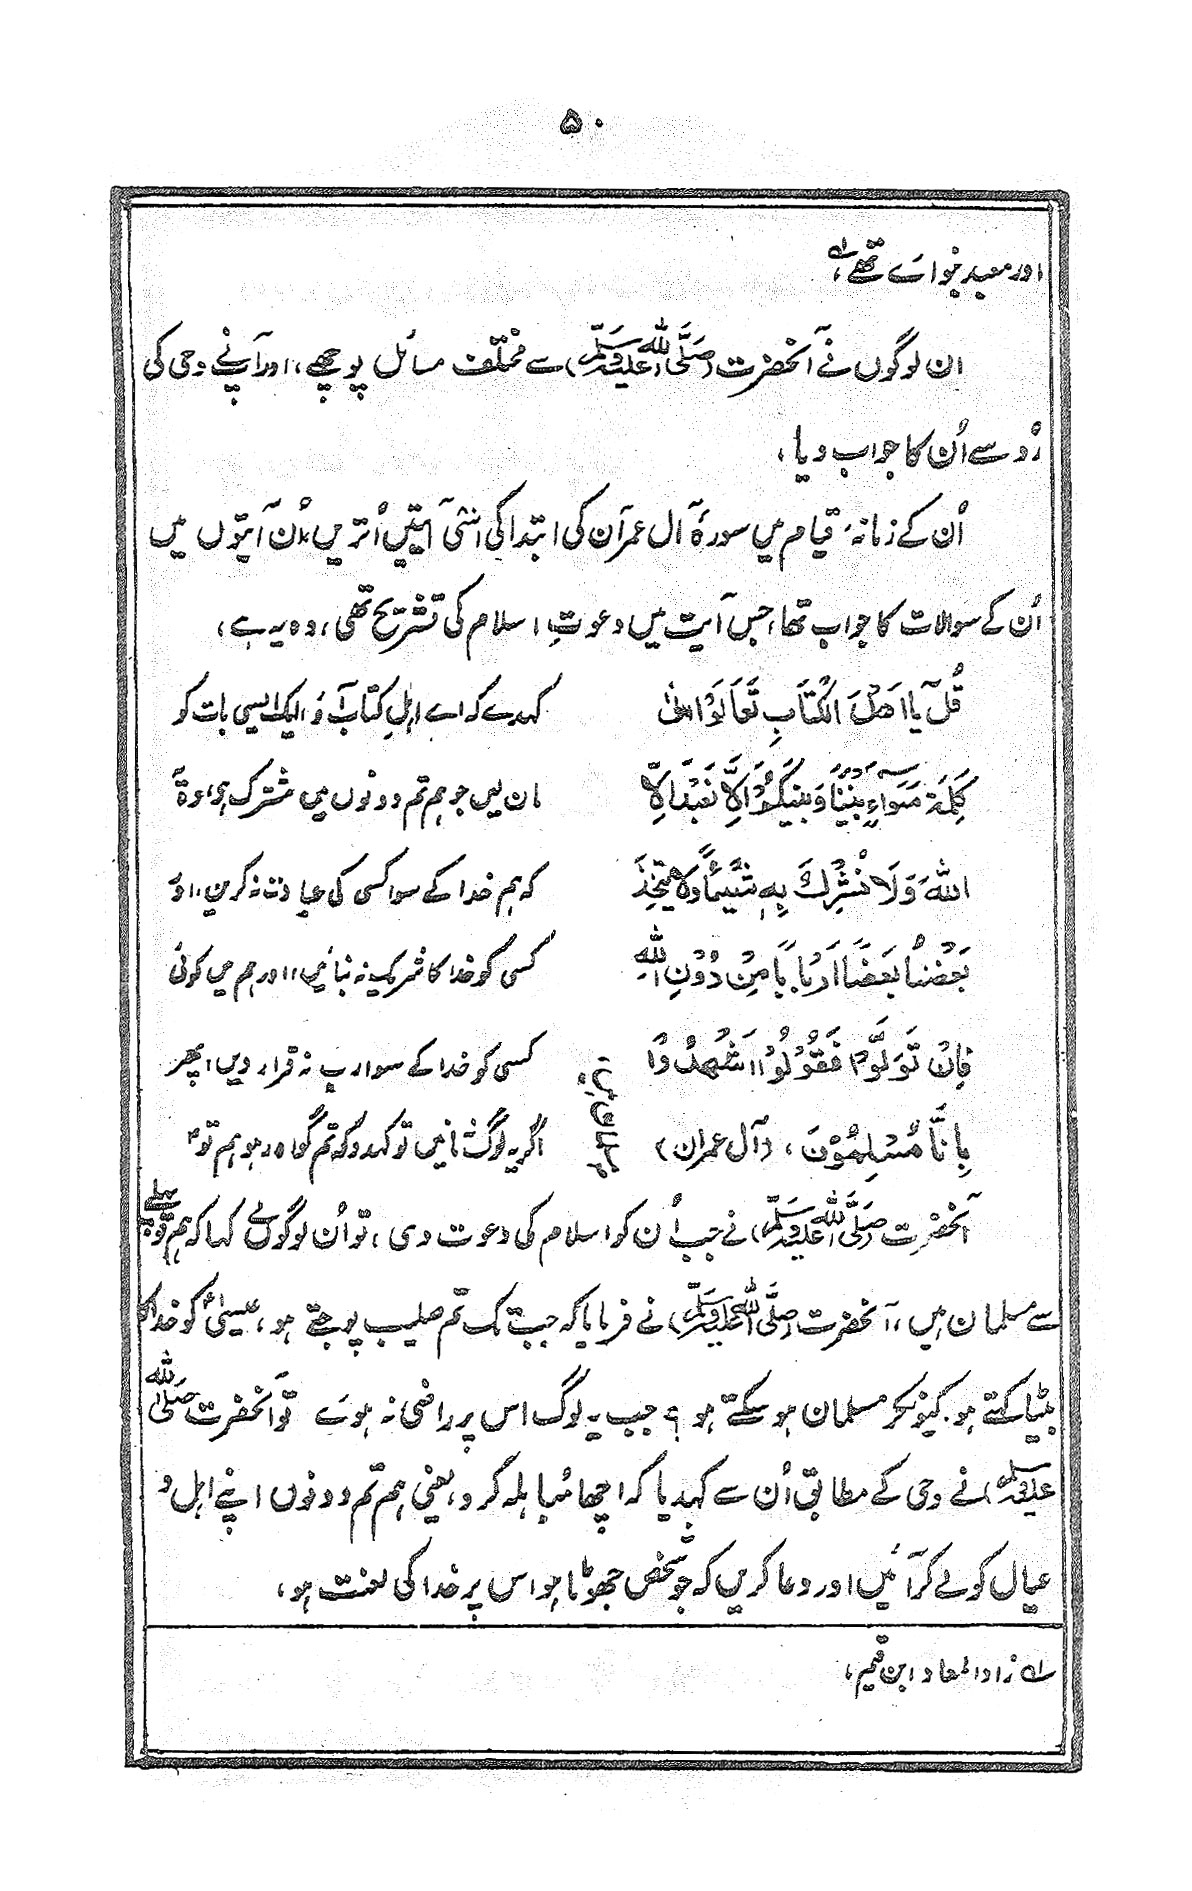 ۵۰
اور معبد بنوائے تھے ؂۱،
ان لوگوں نے آنحضرت (صَلَّی اللہُ عَلَیْہِ وَسَلَّمَ) سے مختلف مسائل پوچھے، اور آپنے وحی کی
رُو سے اُن کا جواب دیا،
اُن کے زمانۂ قیام میں سورۂ آل عمران کی ابتدا کی اسّی آیتیں اُتریں، اُن آیتوں میں
اُن کے سوالات کا جواب تھا، جس آیت میں دعوتِ اسلام کی تشریح تھی، وہ یہ ہے،
قُلْ یا اَهْلَ الْکِتَابِ تَعَالَوْا اِلیٰ کہدے کہ اے اہلِ کتاب آؤ ایک ایسی بات کو
کَلِمَۃٍ سَوَاءٍ بَیْنَنَا وَبَیْنَکُمْ اَلَّا نَعْبُدَ اِلَّا مان لیں جو ہم تم دونوں میں مشترک ہو، وہ
اللهَ وَلَا نُشْرِكَ بِهٖ شَیْئًا وَلَا یَتَّخِذَ کہ ہم خدا کے سوا کسی کی عبادت نہ کریں، اور
بَعْضُنَا بَعْضًا اَرْبَابًا مِنْ دُوْنِ اللهِ کسی کو خدا کا شریک نہ بنائیں، اور ہم میں کوئی
فَاِنْ تَوَلَّوْا فَقُوْلُوا اشْهَدُوْا کسی کو خدا کے سوا رب نہ قرار دیں، پھر
بِاَنَّا مُسْلِمُوْنَ، (آل عمران) اگر یہ لوگ نہ مانیں تو کہدو کہ تم گواہ رہو ہم تو
مسلمان ہیں،
آنحضرت (صَلَّی اللہُ عَلَیْہِ وَسَلَّمَ) نے جب اُن کو اسلام کی دعوت دی، تو اُن لوگوں نے کہا کہ ہم تو پہلے
سے مسلمان ہیں، آنحضرت (صَلَّی اللہُ عَلَیْہِ وَسَلَّمَ) نے فرمایا کہ جب تک تم صلیب پوجتے ہو، عیسیٰؑ کو خدا کا
بیٹا کہتے ہو. کیونکر مسلمان ہو سکتے ہو؟ جب یہ لوگ اس پر راضی نہ ہوئے تو آنحضرت (صَلَّی اللہُ
عَلَیْہِ وَسَلَّمَ) نے وحی کے مطابق اُن سے کہدیا کہ اچھا مُباہلہ کرو، یعنی ہم تم دونوں اپنے اہل و
عیال کو لے کر آئیں اور دعا کریں کہ جو شخص جھوٹا ہو اس پر خدا کی لعنت ہو،
؂۱ زاد المعاد ابن قیم،